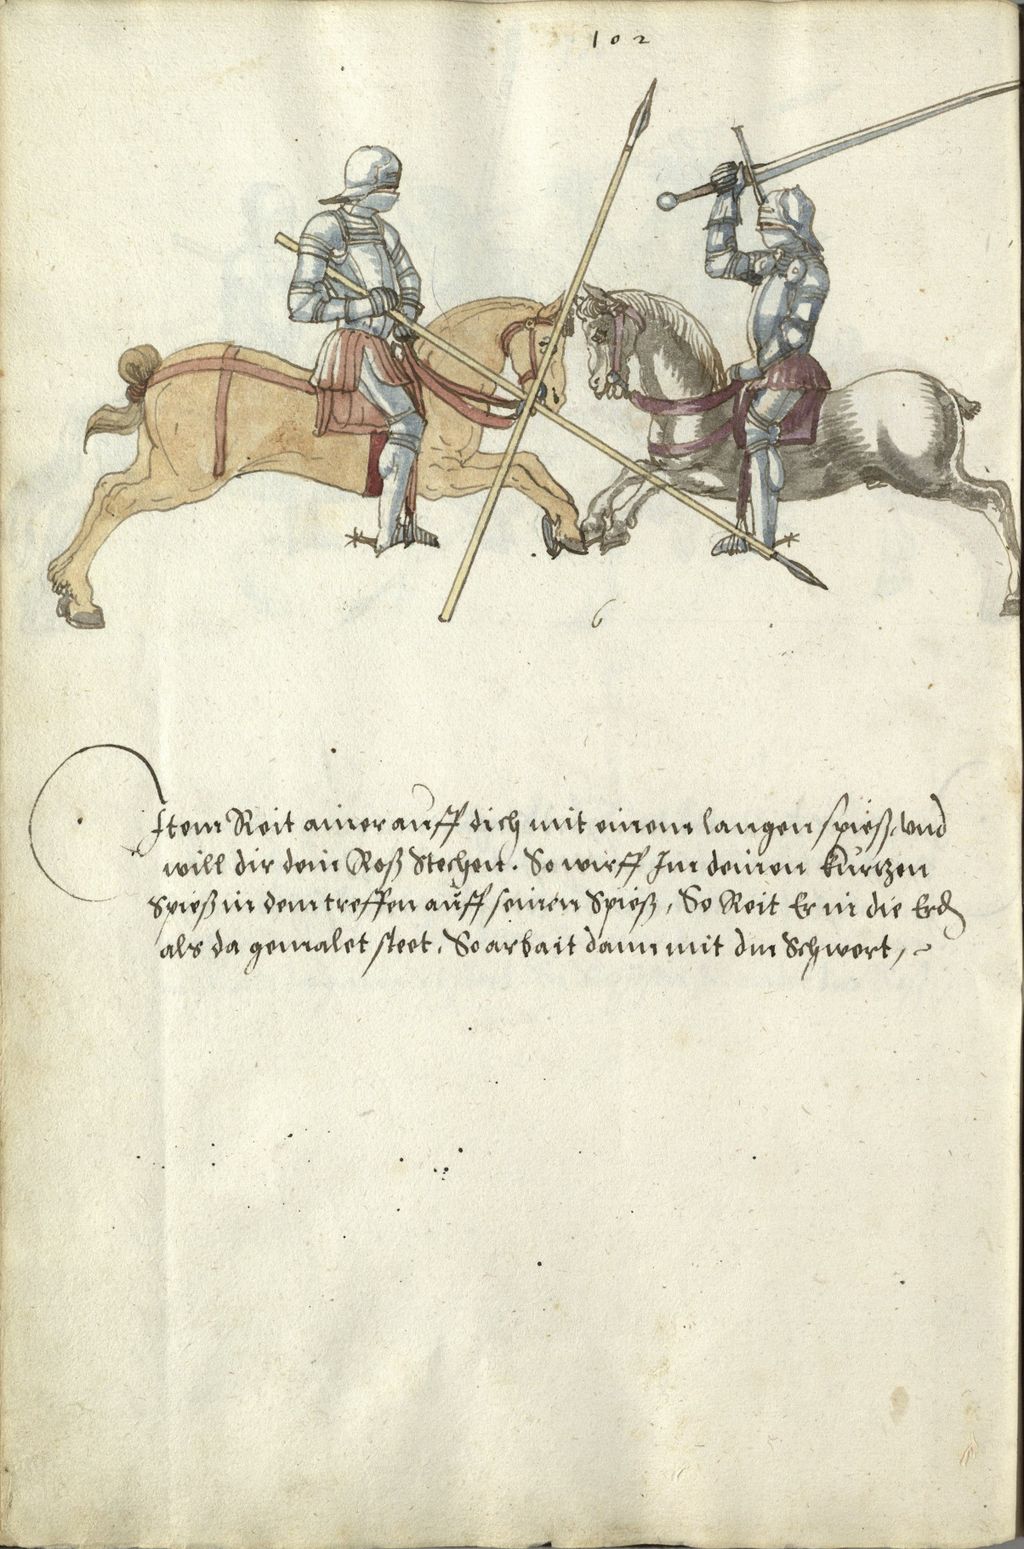 102
6
Item Reit ainer auff dich mit einem langen spieß, und
will dir dein Roß Stechen. So wirff Im deinen kurtzen
Spieß in dem treffen auff seinen Spieß, So Reit Er in die Erd
als da gemalet steet. So arbait dann mit dm Schwert,